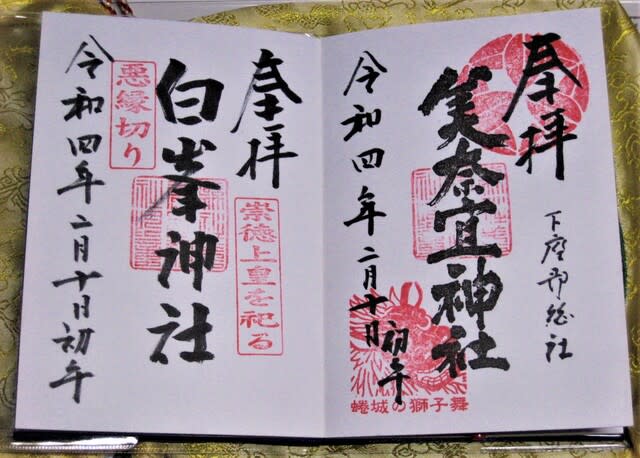 奉拝
下座郡総社
美奈宜神社
令和四年二月十日
初午
蜷城の獅子舞
奉拝
崇徳上皇を祀る
白峯神社
悪縁切り
令和四年二月十日初午